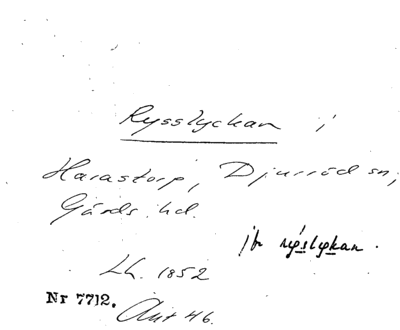 Rysslyckan i
Harastorp, Djurröd sn,
Gärds hd.
jfr rýslykan.
Lh. 1852
Nr 7712.
Aut 46.